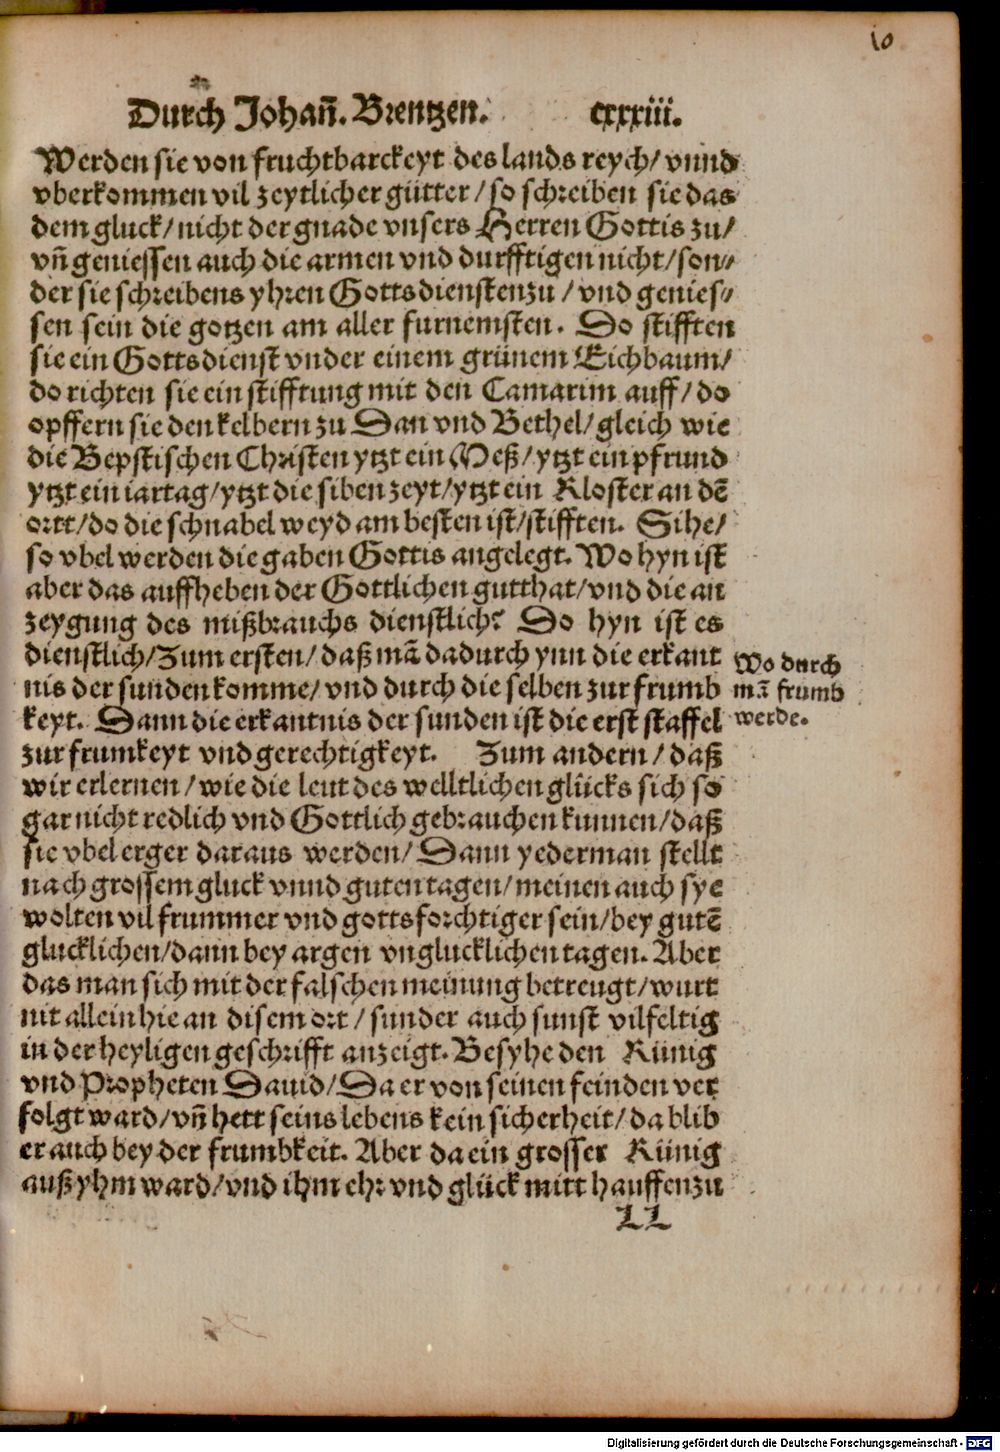 10
Durch Johañ. Brentzen. cxxxiii.
Werden sie von fruchtbarckeyt des lands reych/ vnnd
vberkommen vil zeytlicher gütter/ so schreiben sie das
dem gluck/ nicht der gnade vnsers Herren Gottis zu/
vñ geniessen auch die armen vnd durfftigen nicht/ son⸗
der sie schreibens yhren Gottsdiensten zu/ vnd genies⸗
sen sein die gotzen am aller furnemsten. Do stifften
sie ein Gottsdienst vnder einem grünem Eichbaum/
do richten sie ein stifftung mit den Camarim auff/ do
opffern sie den kelbern zu Dan vnd Bethel/ gleich wie
die Bepstischen Christen ytzt ein Meß/ ytzt ein pfrund
ytzt ein iartag/ ytzt die siben zeyt/ ytzt ein Kloster an dē
ortt/ do die schnabel weyd am besten ist/ stifften. Sihe/
so vbel werden die gaben Gottis angelegt. Wo hyn ist
aber das auffheben der Gottlichen gutthat/ vnd die an
zeygung des mißbrauchs dienstlich? Do hyn ist es
dienstlich/ Zum ersten/ daß mā dadurch ynn die erkant
nis der sunden komme/ vnd durch die selben zur frumb
keyt. Dann die erkantnis der sunden ist die erst staffel
zur frumkeyt vnd gerechtigkeyt. Zum andern/ daß
wir erlernen/ wie die leut des welltlichen glücks sich so
gar nicht redlich vnd Gottlich gebrauchen kunnen/ daß
sie vbel erger daraus werden/ Dann yederman stellt
nach grossem gluck vnnd guten tagen/ meinen auch sye
wolten vil frummer vnd gottsforchtiger sein/ bey gutē
glucklichen/ dann bey argen vnglucklichen tagen. Aber
das man sich mit der falschen meinung betreugt/ wurt
nit allein hie an disem ort/ sunder auch sunst vilfeltig
in der heyligen geschrifft anzeigt. Besyhe den Künig
vnd Propheten Dauid/ Da er von seinen feinden ver
folgt ward/ vñ hett seins lebens kein sicherheit/ da blib
er auch bey der frumbkeit. Aber da ein grosser Künig
auß yhm ward/ vnd ihm ehr vnd glück mitt hauffen zu
LL
Wo durch
mā frumb
werde.
Digitalisierung gefördert durch die Deutsche Forschungsgemeinschaft - DFG